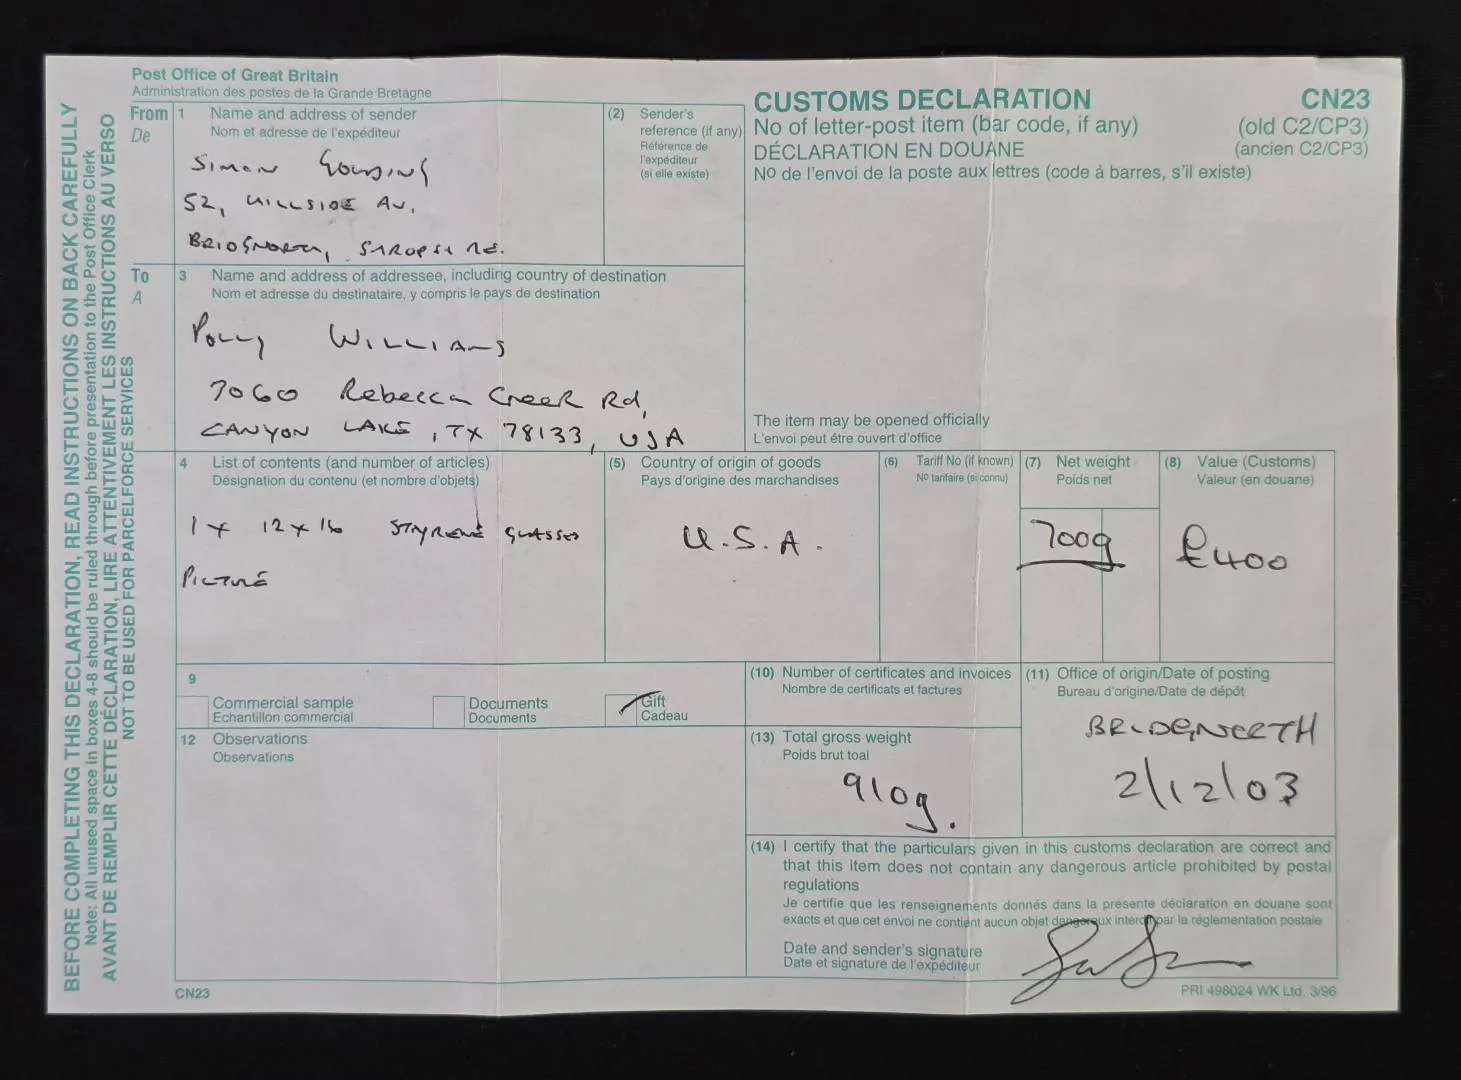 Post Office of Great Britain
Administration des postes de la Grande Bretagne
BEFORE COMPLETING THIS DECLARATION, READ INSTRUCTIONS ON BACK CAREFULLY
Note: All unused space in boxes 4-8 should be ruled through before presentation to the Post Office Clerk
AVANT DE REMPLIR CETTE DÉCLARATION, LIRE ATTENTIVEMENT LES INSTRUCTIONS AU VERSO
NOT TO BE USED FOR PARCELFORCE SERVICES
From
De
1 Name and address of sender
Nom et adresse de l'expéditeur
SIMON
52, HILLSIDE AV.
BRIDGNORTH, SHROPSHIRE.
(2) Sender's
reference (if any)
Référence de
l'expéditeur
(si elle existe)
CUSTOMS DECLARATION
No of letter-post item (bar code, if any)
DÉCLARATION EN DOUANE
No de l'envoi de la poste aux lettres (code à barres, s'il existe)
CN23
(old C2/CP3)
(ancien C2/CP3)
To
A
3 Name and address of addressee, including country of destination
Nom et adresse du destinataire, y compris le pays de destination
POLLY WILLIAMS
7060 Rebecca Creek Rd,
CANYON LAKE, TX 78133, USA
The item may be opened officially
L'envoi peut être ouvert d'office
4 List of contents (and number of articles)
Désignation du contenu (et nombre d'objets)
1 x 12 x 16 STYRENE GLASSED
PICTURE
(5) Country of origin of goods
Pays d'origine des marchandises
U.S.A.
(6) Tariff No (if known)
No tarifaire (si connu)
(7) Net weight
Poids net
700g
(8) Value (Customs)
Valeur (en douane)
£400
9
Commercial sample
Echantillon commercial
Documents
Documents
Gift
Cadeau
(10) Number of certificates and invoices
Nombre de certificats et factures
(11) Office of origin/Date of posting
Bureau d'origine/Date de dépôt
BRIDGNORTH
2/12/03
12 Observations
Observations
(13) Total gross weight
Poids brut toal
910g.
(14) I certify that the particulars given in this customs declaration are correct and
that this item does not contain any dangerous article prohibited by postal
regulations
Je certifie que les renseignements donnés dans la présente déclaration en douane sont
exacts et que cet envoi ne contient aucun objet dangereux interdit par la réglementation postale
Date and sender's signature
Date et signature de l'expéditeur
CN23
PRI 498024 WK Ltd. 3/96